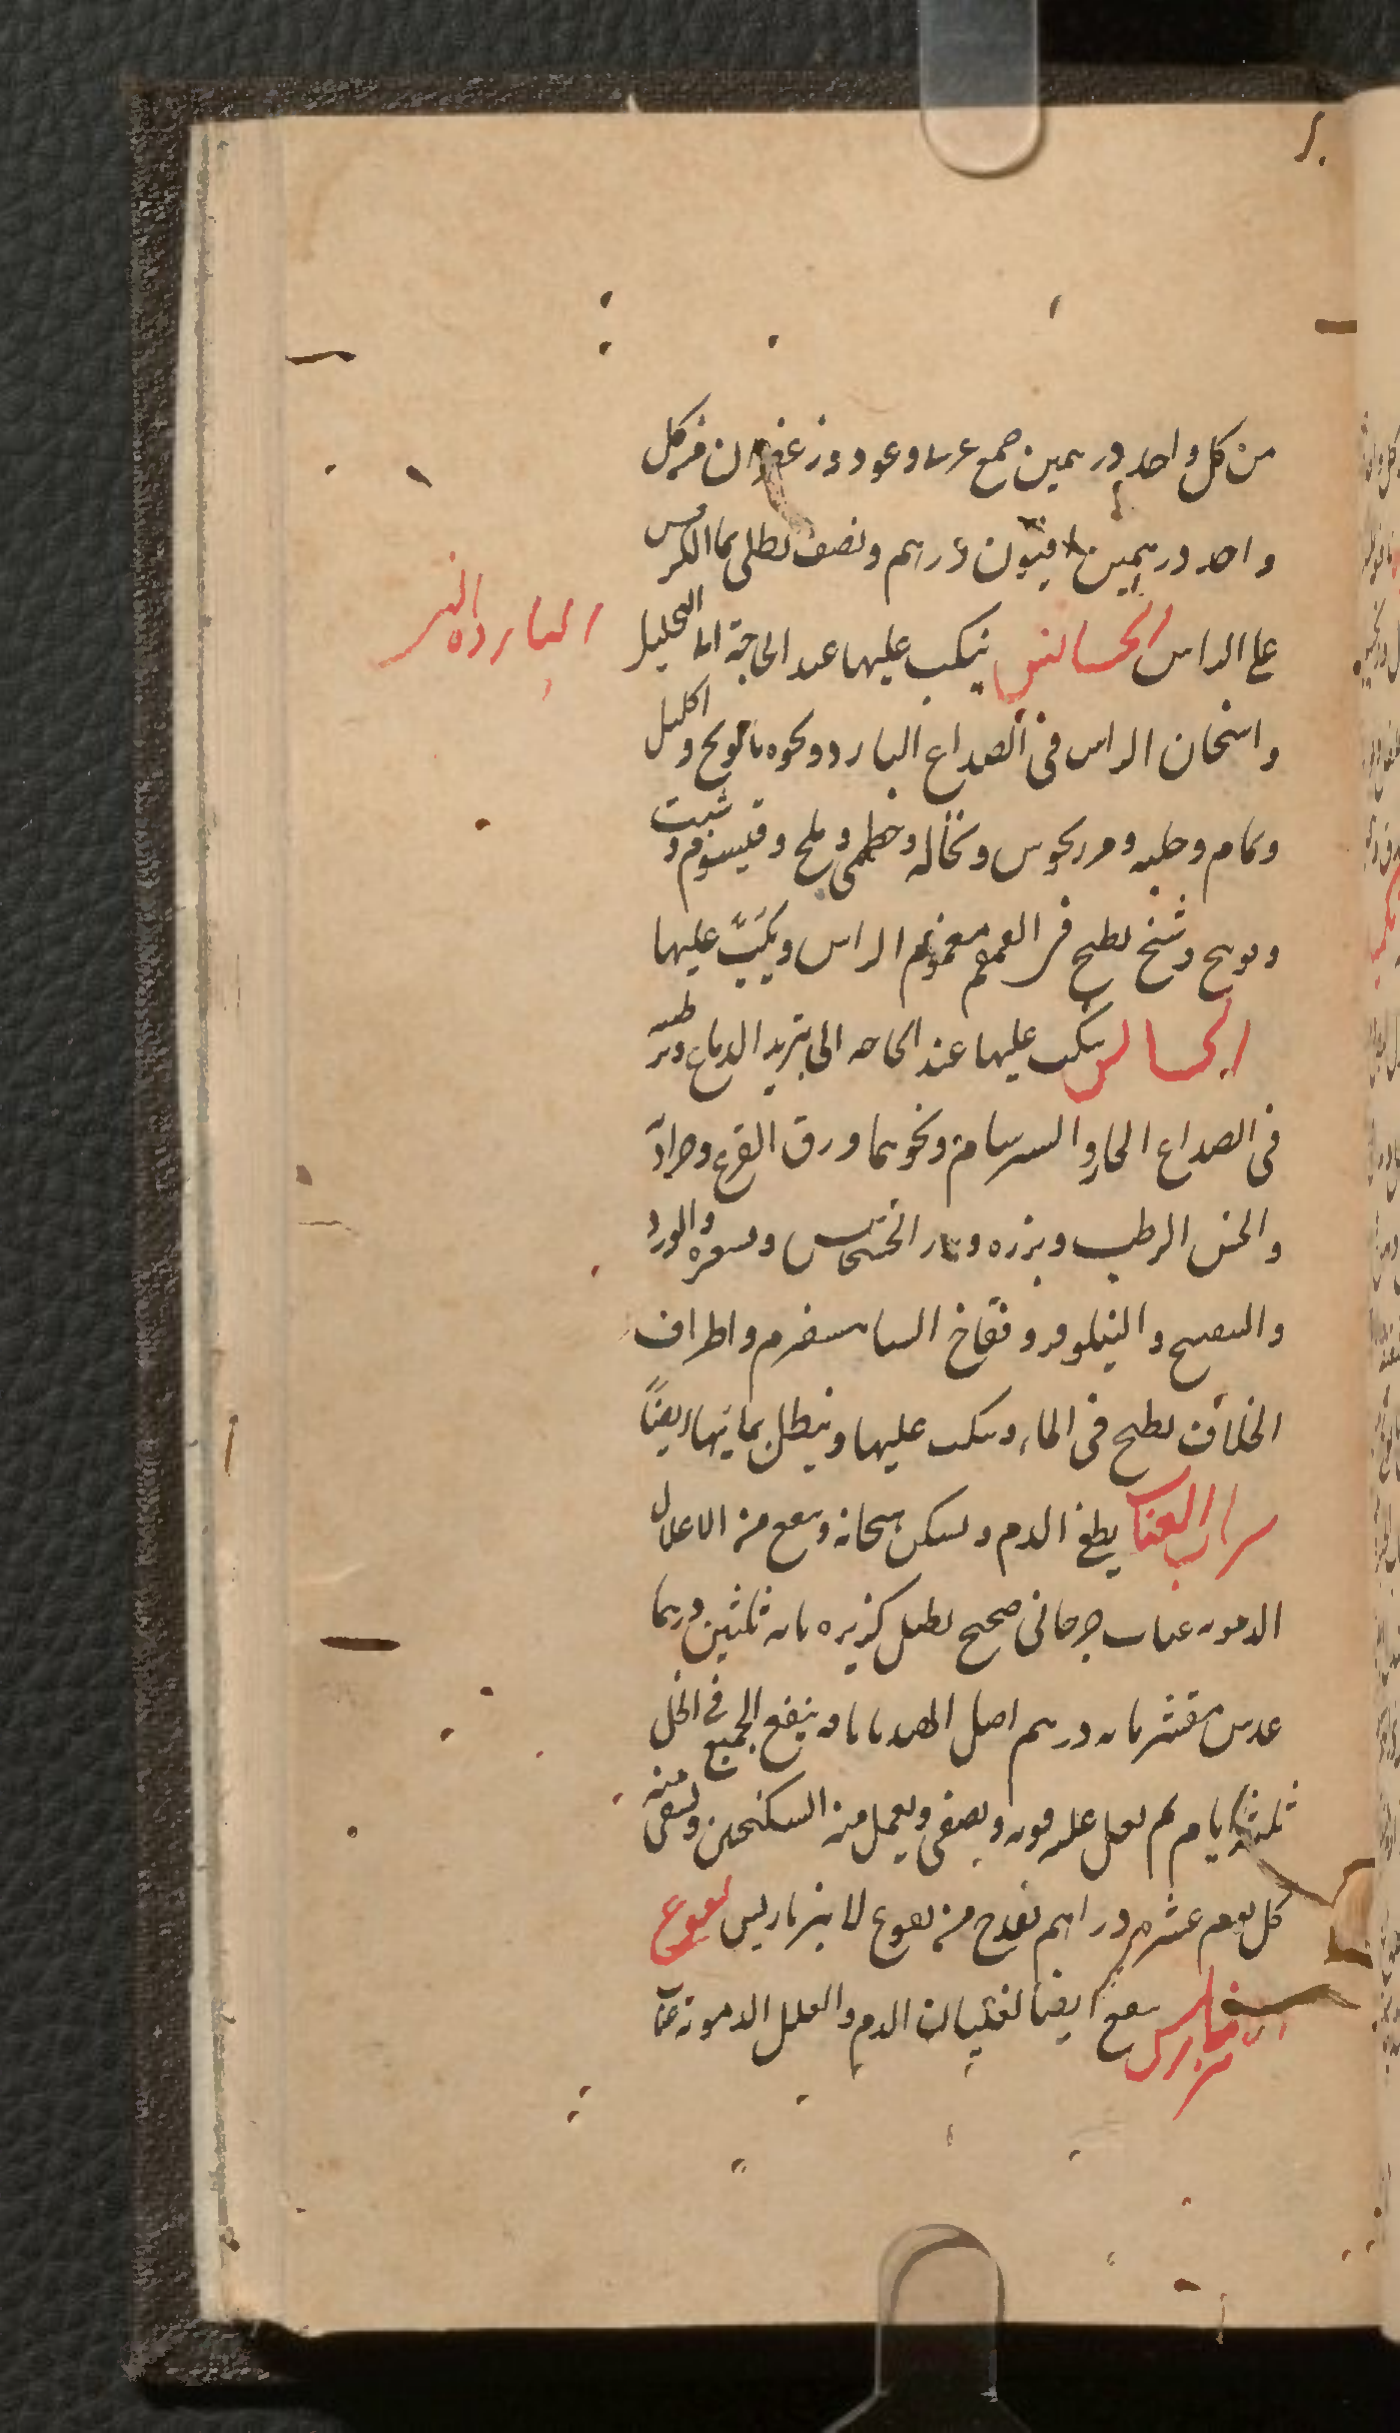 من كل واحد درهمين صمغ عربى وعود وزعفران من كل
واحد درهمين افيون درهم ونصف يطلى بماء الكرفس
على الراس الحشائش ينكب عليها عند الحاجة اما التحليل
البارده التى
واسخان الراس فى الصداع البارد ونحوه بابونج واكليل
ونمام وحلبه ومرزنجوش ونخاله وخطمى وملح وقيسوم وشبت
وشيح يطبخ فى القمقم مغموم الراس ويكبّ عليها
الحشائش ينكب عليها عند الحاجه الى تبريد الدماغ وترطيبه
فى الصداع الحار والسرسام ونحوهما ورق القرع وجرادة
والخس الرطب وبزره وبزر الخشخاش وقشوره والورد
والبنفسج والنيلوفر وفقاح الشاهسفرم واطراف
الخلاف يطبخ فى الماء وينكب عليها وينطل بمائها ايضاً
شراب العناب يطفئ الدم ويسكن هيجانه وينفع من الاعلال
الدمويه عناب جرجانى صحيح رطل كزبره يابسه ثلثين درهما
عدس مقشر مائه درهم اصل الهندبا باقه ينقع الجميع فى الخل
ثلثة ايام ثم يعمل عليه قوته ويصفى ويعمل منه السكنجبين ويسقى منه
كل يوم عشره دراهم بقدح من نقوع الانبرباريس نقوع
الانبرباريس ينفع ايضا لغليان الدم والعلل الدمويه عناب